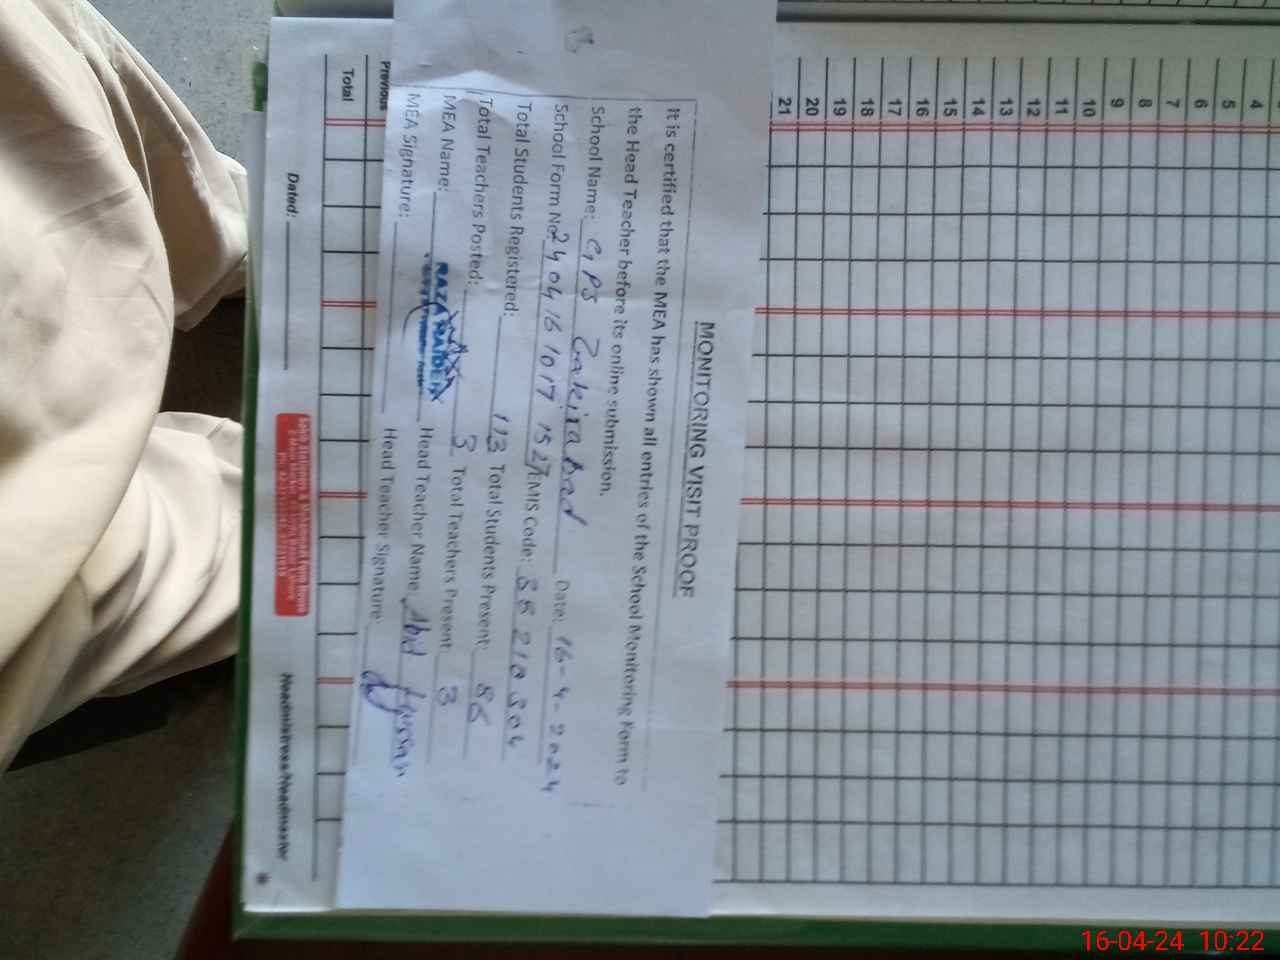 MONITORING VISIT PROOF
It is certified that the MEA has shown all entries of the School Monitoring Form to
the Head Teacher before its online submission.
School Name: GPS Zakirabad Date: 16-4-2024
School Form No. 24041610171527 EMIS Code: 35210304
Total Students Registered: 113 Total Students Present: 86
Total Teachers Posted: 3 Total Teachers Present: 3
MEA Name: RAZA HAIDER Head Teacher Name: Abid Hussain
MEA Signature: Head Teacher Signature:
4
5
6
7
8
9
10
11
12
13
14
15
16
17
18
19
20
21
Previous
Total
Dated: Headmistress/Headmaster
16-04-24 10:22